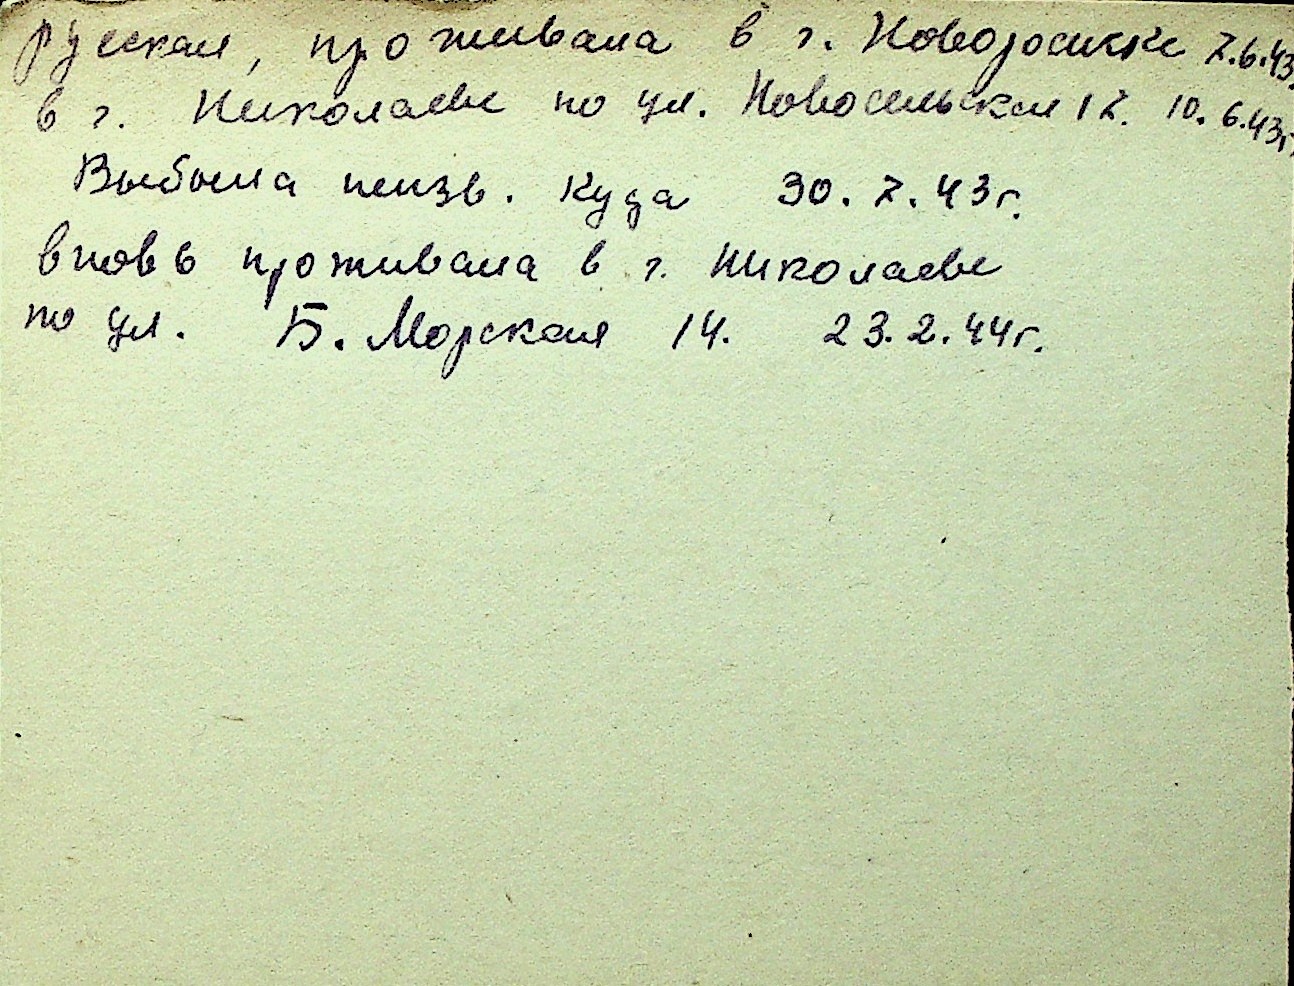 русская, проживала в г. Новоросийске 7.6.43
в г. Николаеве по ул. Новосельская 12. 10.6.43г.
Выбыла неизв. куда 30.7.43г.
вновь проживала в г. Николаеве
по ул. Б. Морская 14. 23.2.44г.